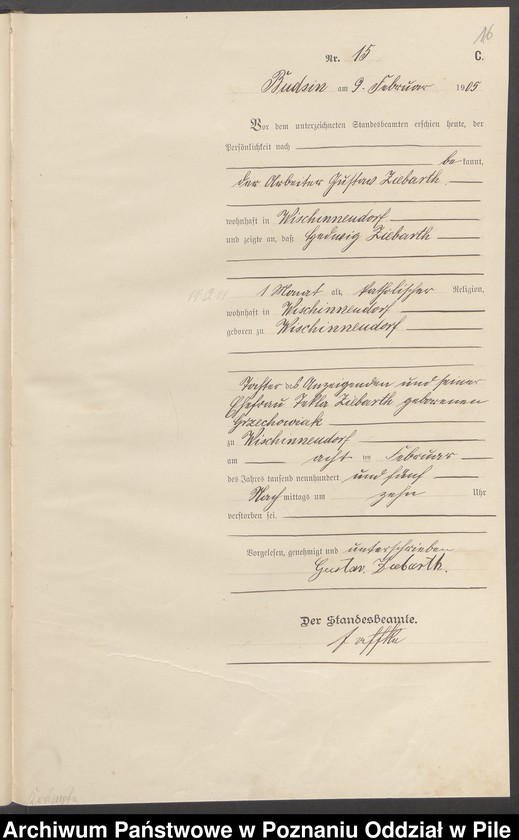 16
Nr. 15 C.
Budsin am 9. Februar 1905
Vor dem unterzeichneten Standesbeamten erschien heute, der
Persönlichkeit nach
bekannt,
der Arbeiter Gustav Ziebarth
wohnhaft in Wischinnendorf
und zeigte an, daß Hedwig Ziebarth
1 Monat alt, katholischer Religion,
wohnhaft in Wischinnendorf
geboren zu Wischinnendorf
Tochter des Anzeigenden und seiner
Ehefrau Tekla Ziebarth geborenen
Grzechowiak
zu Wischinnendorf
am acht ten Februar
des Jahres tausend neunhundert und fünf
Nach mittags um zehn Uhr
verstorben sei.
Vorgelesen, genehmigt und unterschrieben
Gustav Ziebarth.
Der Standesbeamte.
Archiwum Państwowe w Poznaniu Oddział w Pile